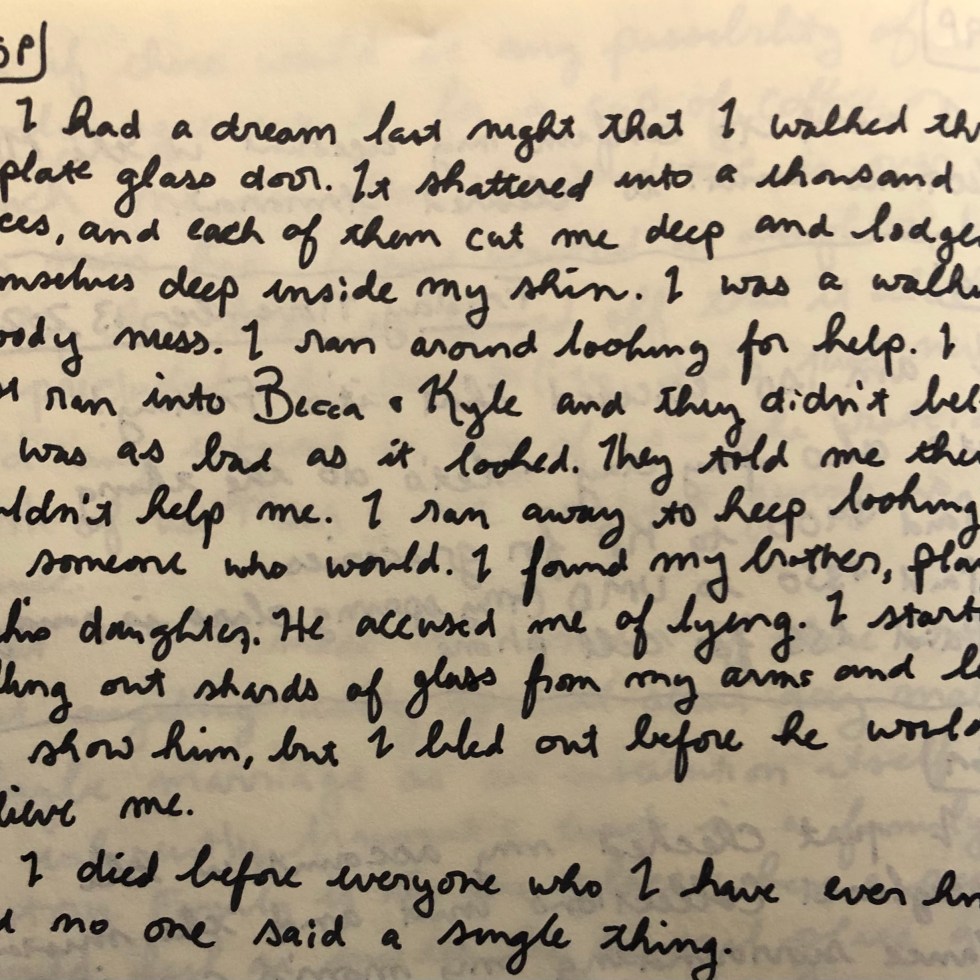 5P
I had a dream last night that I walked th
plate glass door. It shattered into a thousand
ces, and each of them cut me deep and lodge
mselves deep inside my skin. I was a walk
oody mess. I ran around looking for help. I
st ran into Becca & Kyle and they didn't bel
was as bad as it looked. They told me the
uldn't help me. I ran away to keep looking
someone who would. I found my brother, pla
his daughter. He accused me of lying. I start
lling out shards of glass from my arms and l
show him, but I bled out before he would
lieve me.
I died before everyone who I have ever kn
d no one said a single thing.